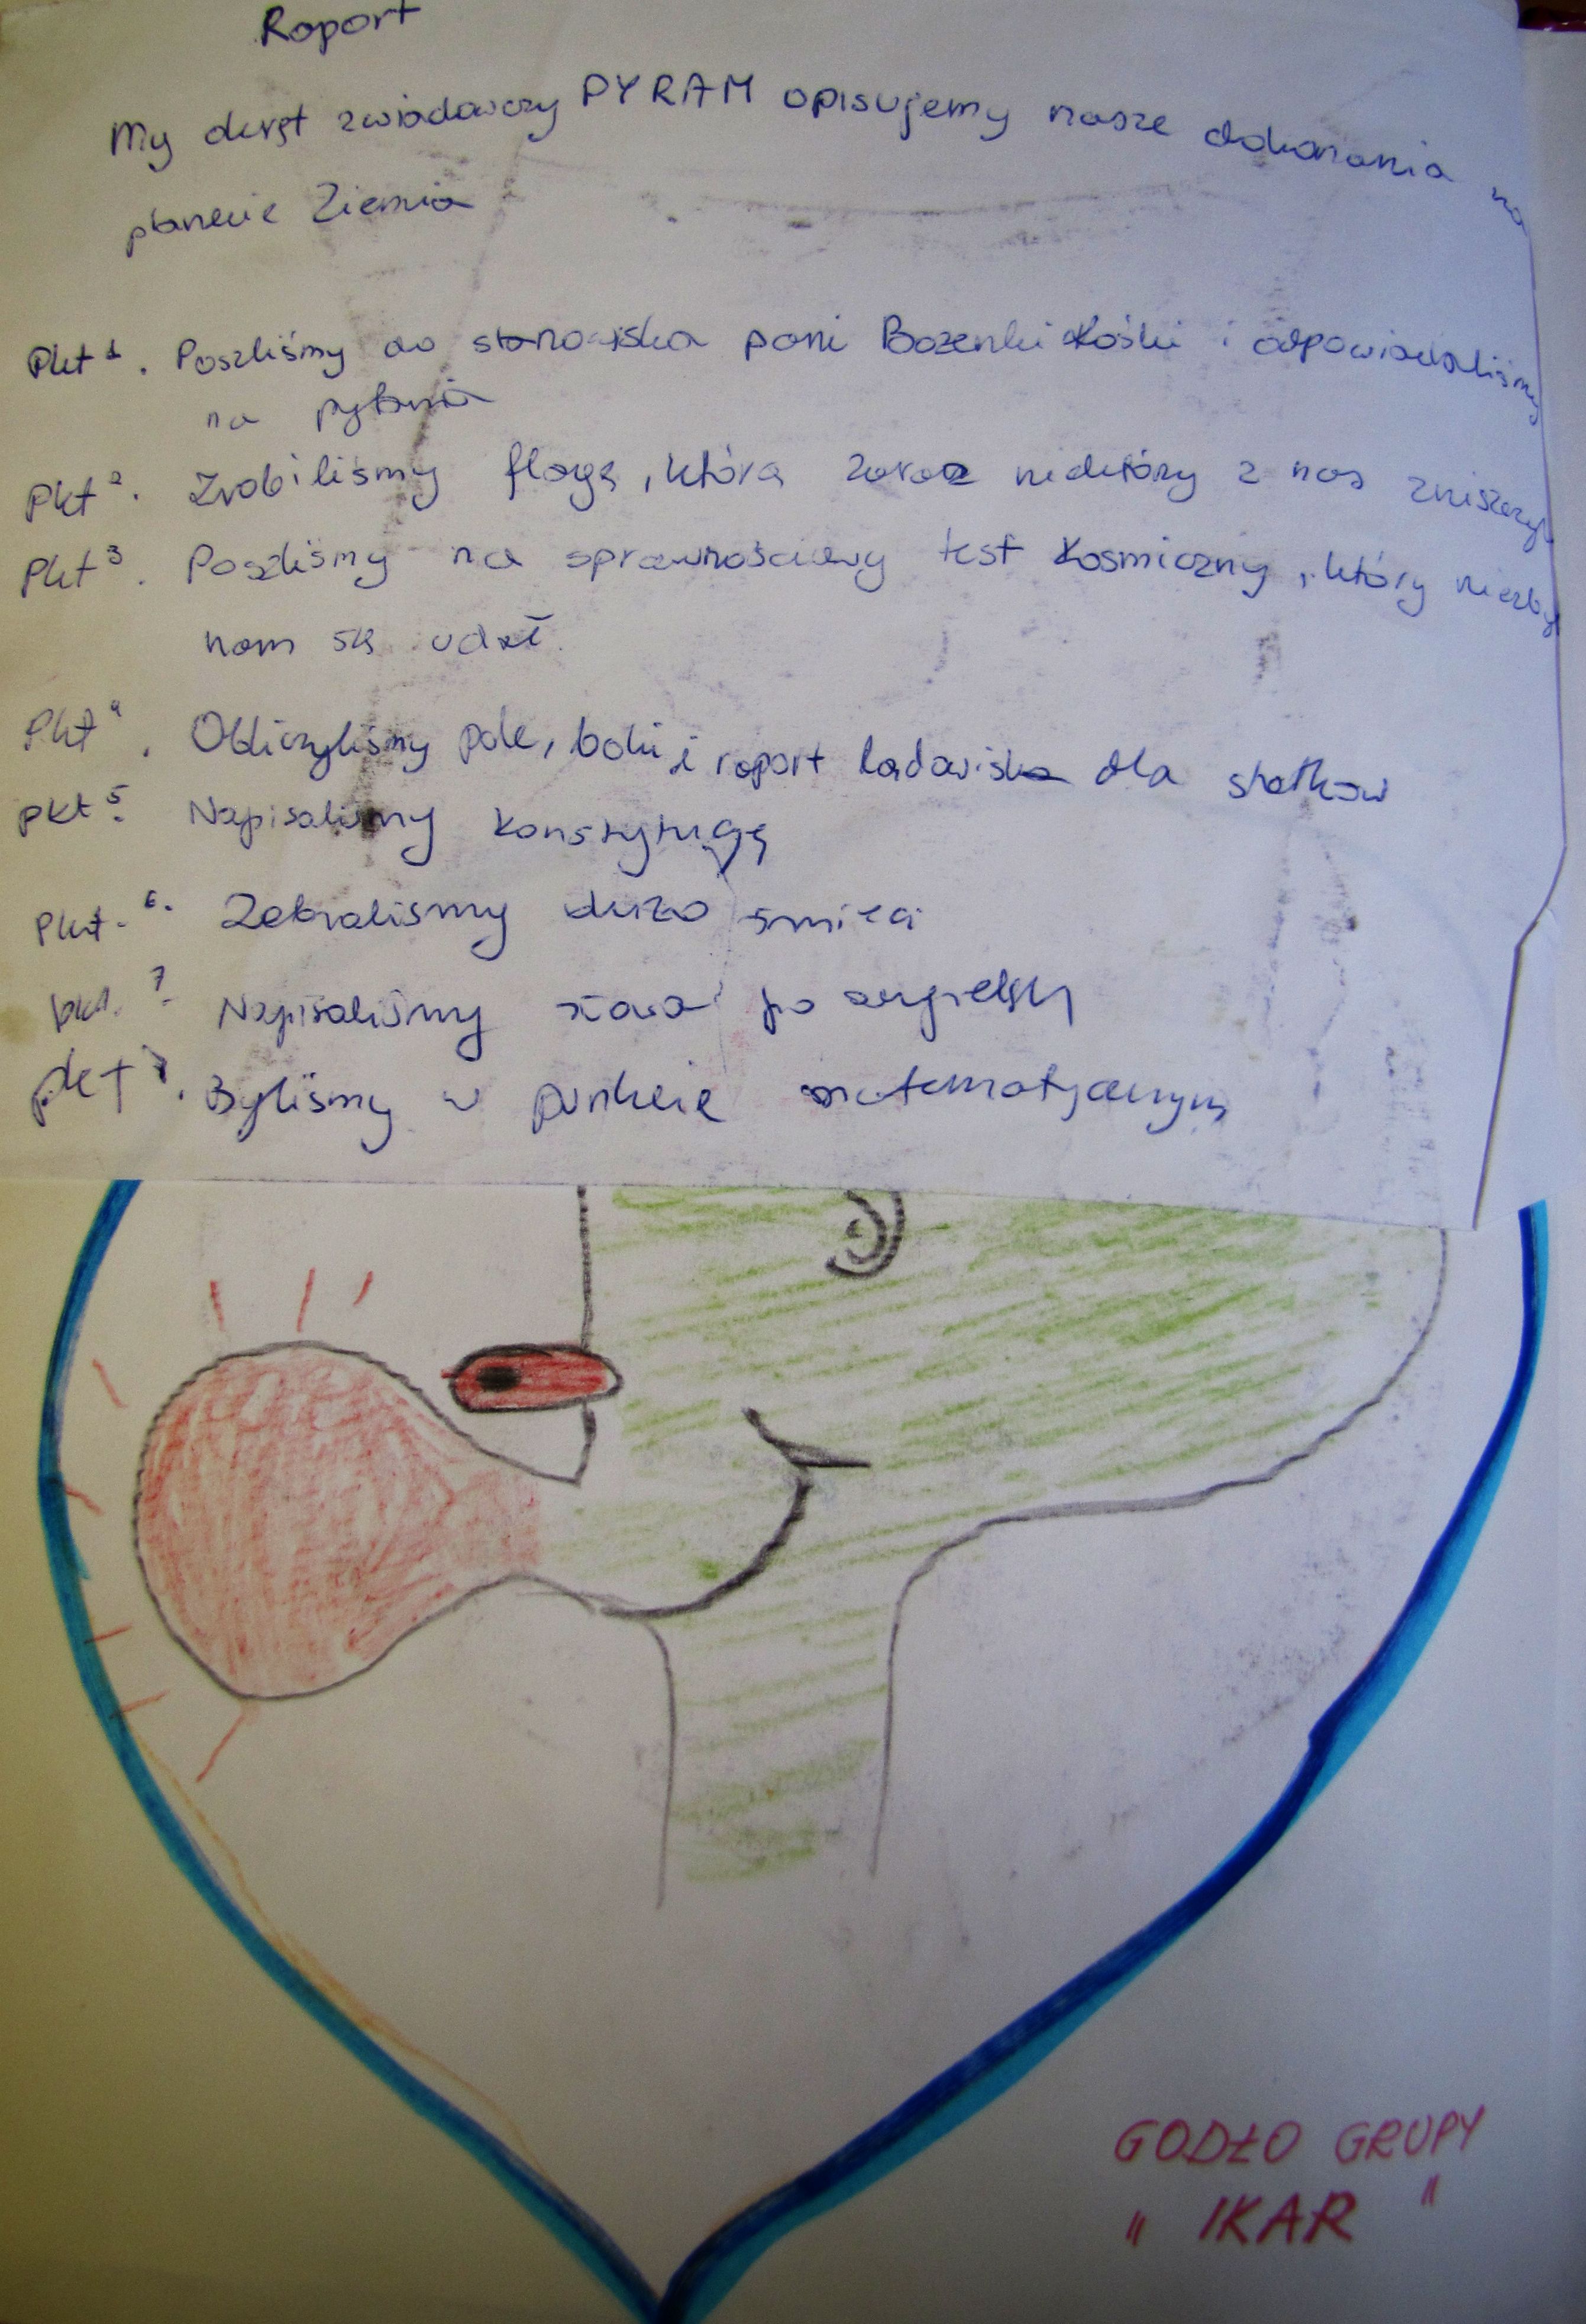 Raport
My okręt zwiadowczy PYRAM opisujemy nasze dokonania na
planecie Ziemia
Pkt 1. Poszliśmy do stanowiska pani Bożenki Kośki i odpowiadaliśmy
na pytania
Pkt 2. Zrobilismy flagę, którą zaraz niektóry z nas zniszczył
Pkt 3. Poszliśmy na sprawnościowy test kosmiczny, który niezby
nam się udał.
Pkt 4. Obliczyliśmy pole, boki i raport ladowiska dla statków
pkt 5. Napisaliśmy konstytucję
Pkt. 6. Zebralismy dużo śmieci
pkt. 7. Napisaliśmy słowa po angielsku
pkt 8. Byliśmy w punkcie matematycznym
GODŁO GRUPY
" IKAR "